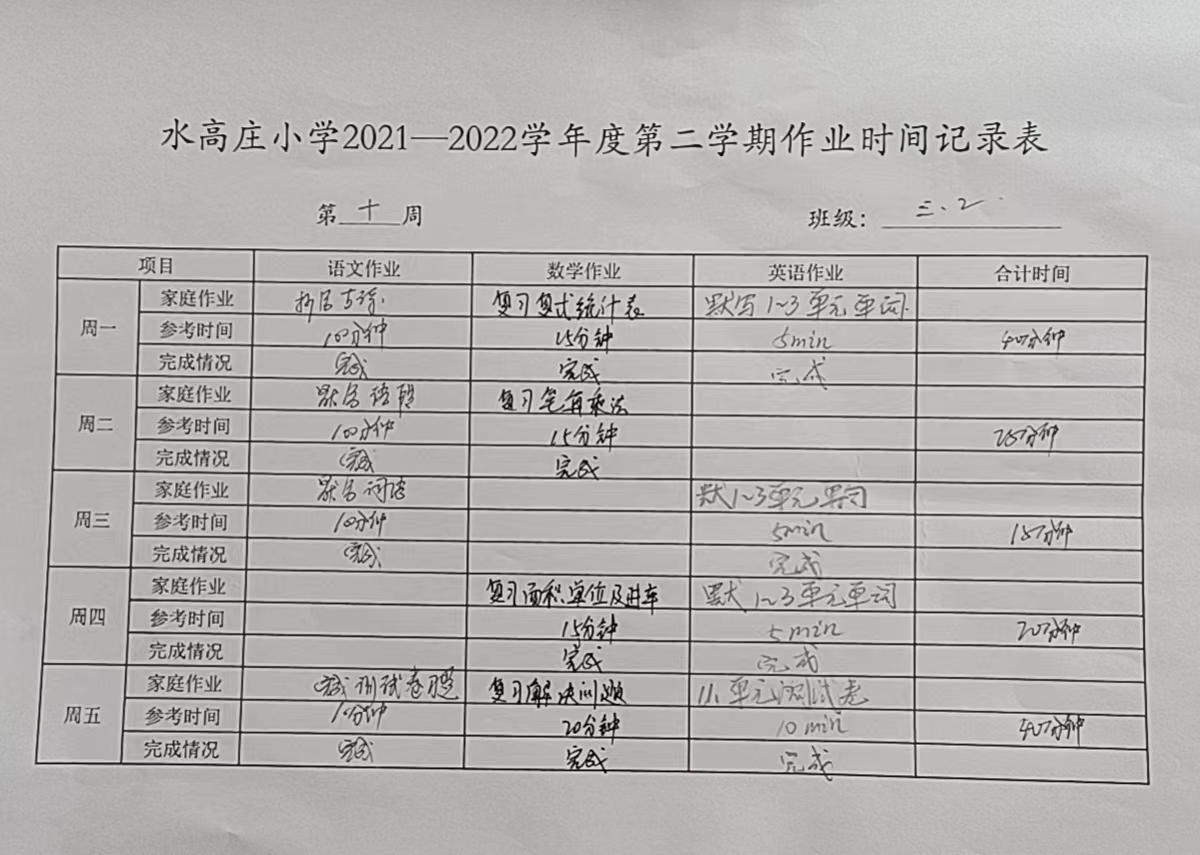 水高庄小学2021—2022学年度第二学期作业时间记录表
第 十 周 班级: 三.2
项目 语文作业 数学作业 英语作业 合计时间
周一
家庭作业 复习复式统计表 默写1~3单元单词
参考时间 10分钟 15分钟 5min 40分钟
完成情况 完成 完成 完成
周二
家庭作业 默写 复习笔算乘法
参考时间 10分钟 15分钟 25分钟
完成情况 完成 完成
周三
家庭作业 默写词语 默1~3单元单词
参考时间 10分钟 5min 15分钟
完成情况 完成 完成
周四
家庭作业 复习面积单位及进率 默1~3单元单词
参考时间 15分钟 5min 20分钟
完成情况 完成 完成
周五
家庭作业 完成测试卷 复习解决问题 单元测试卷
参考时间 10分钟 20分钟 10min 40分钟
完成情况 完成 完成 完成